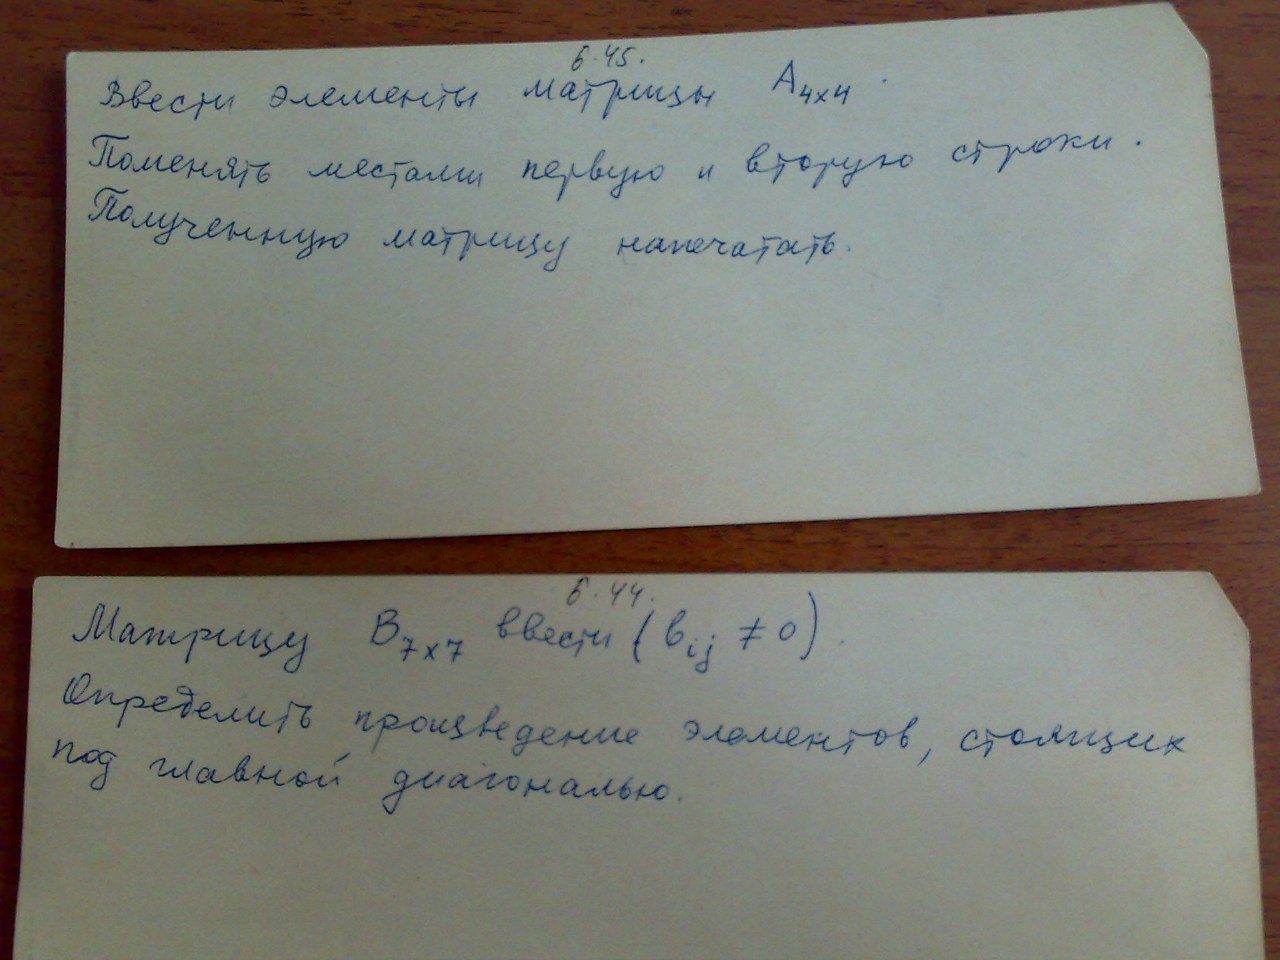 6.45.
Ввести элементы матрицы A₄ₓ₄.
Поменять местами первую и вторую строки.
Полученную матрицу напечатать.
6.44.
Матрицу B₇ₓ₇ ввести (bᵢⱼ ≠ 0).
Определить произведение элементов, стоящих
под главной диагональю.